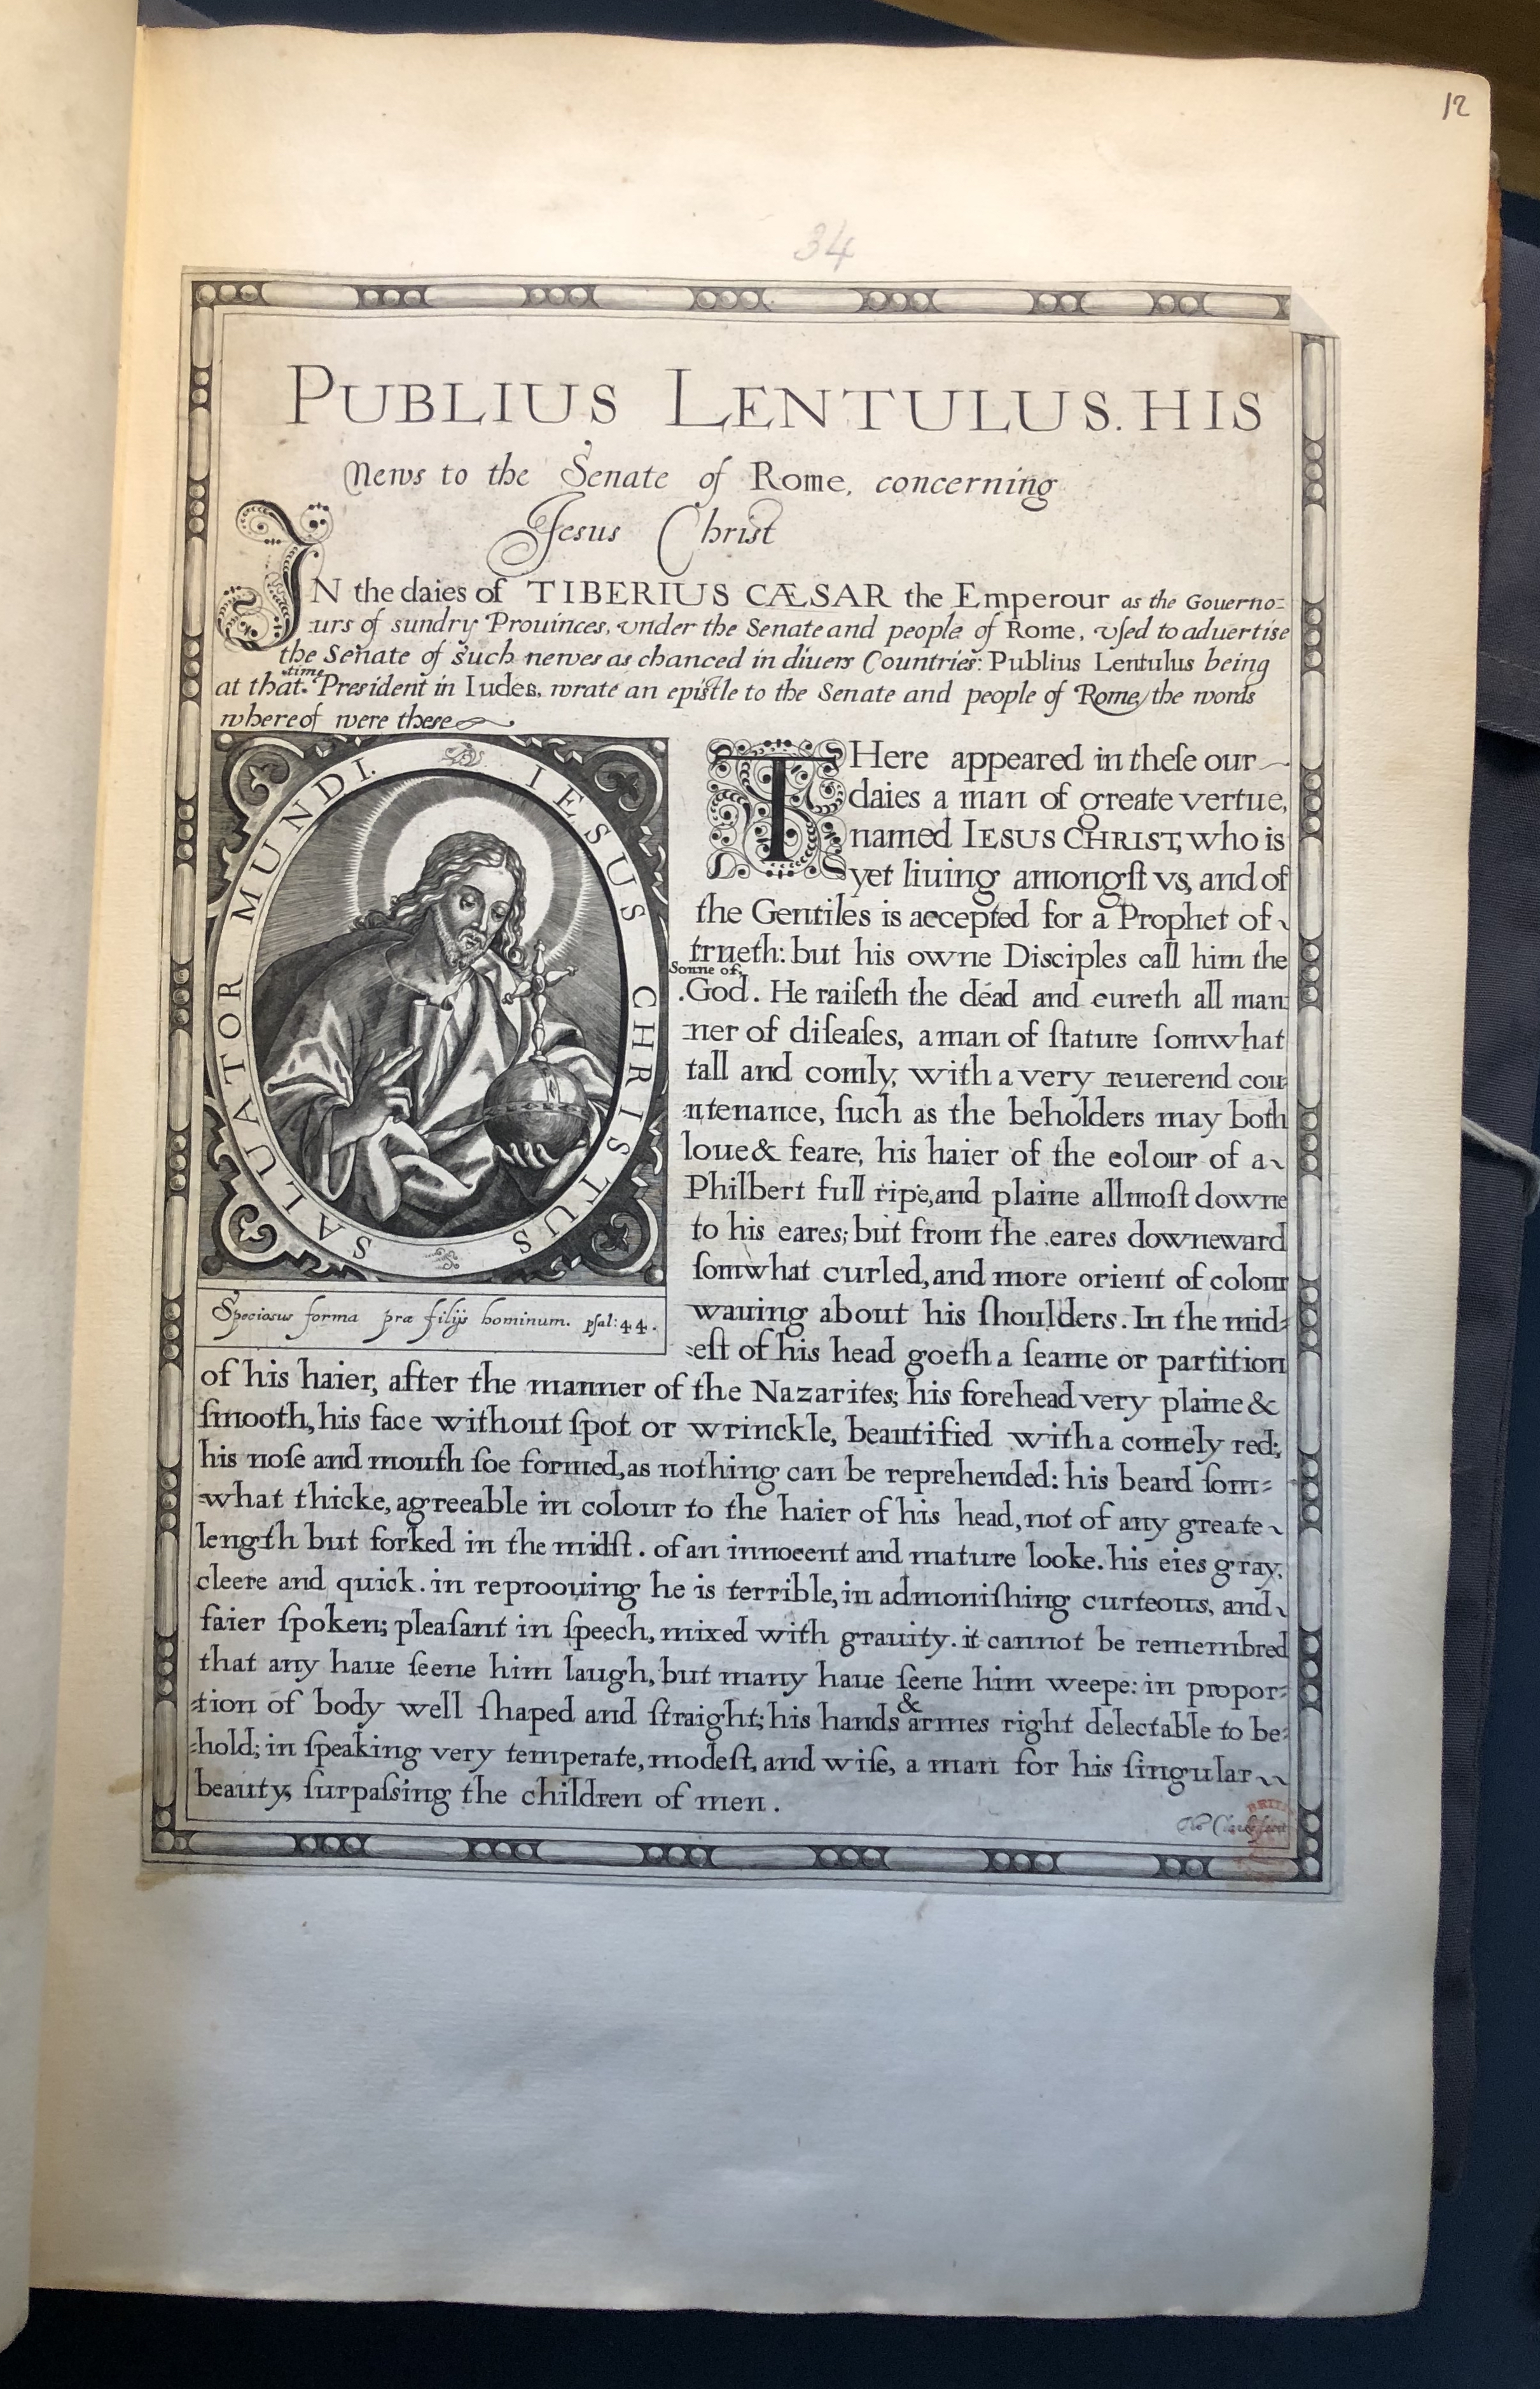 12
34
PUBLIUS LENTULUS. HIS
News to the Senate of Rome, concerning
Jesus Christ
IN the daies of TIBERIUS CÆSAR the Emperour as the Gouerno=
:urs of sundry Prouinces, vnder the Senate and people of Rome, vsed to aduertise
the Senate of such newes as chanced in diuers Countries: Publius Lentulus being
time
at that. President in Iudea, wrate an epistle to the Senate and people of Rome, the words
whereof were these
IESUS CHRISTUS SALUATOR MUNDI.
Speciosus forma præ filijs hominum. psal: 44.
THere appeared in theſe our
daies a man of greate vertue,
named IESUS CHRIST, who is
yet liuing amongſt vs, and of
the Gentiles is accepted for a Prophet of
trueth: but his owne Disciples call him the
Sonne of,
.God. He raiſeth the dead and cureth all man:
:ner of diſeaſes, a man of ſtature ſomwhat
tall and comly, with a very reuerend cou
:ntenance, ſuch as the beholders may both
loue & feare, his haier of the colour of a
Philbert full ripe, and plaine allmoſt downe
to his eares; but from the eares downeward
ſomwhat curled, and more orient of colour
wauing about his ſhoulders. In the mid=
:eſt of his head goeth a ſeame or partition
of his haier, after the manner of the Nazarites; his forehead very plaine &
ſmooth, his face without ſpot or wrinckle, beautified with a comely red;
his noſe and mouth ſoe formed, as nothing can be reprehended: his beard ſom=
=what thicke, agreeable in colour to the haier of his head, not of any greate
length but forked in the midſt. of an innocent and mature looke. his eies gray,
cleere and quick. in reproouing he is terrible, in admoniſhing curteous, and
faier ſpoken; pleaſant in ſpeech, mixed with grauity. it cannot be remembred
that any haue ſeene him laugh, but many haue ſeene him weepe: in propor=
=tion of body well ſhaped and ſtraight; his hands & armes right delectable to be=
=hold; in ſpeaking very temperate, modeſt, and wiſe, a man for his ſingular
beauty, ſurpaſsing the children of men.